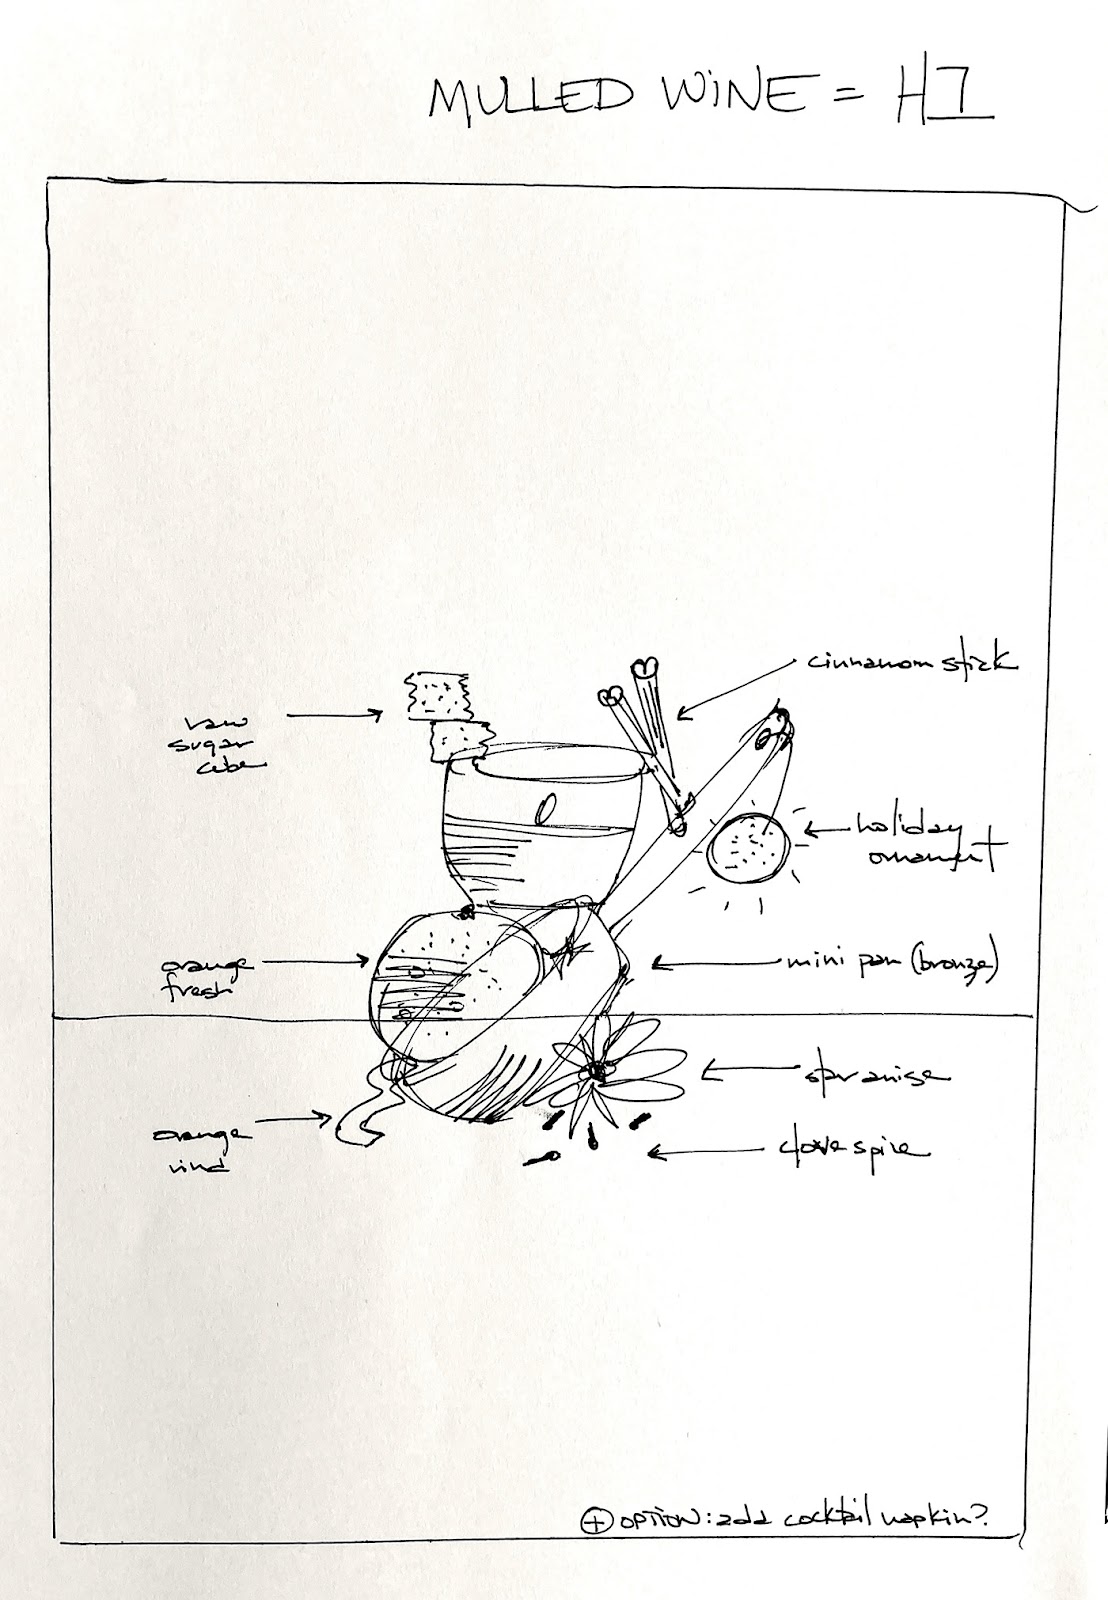 MULLED WINE = H1
cinnamom stick
raw
sugar
cube
holiday
ornament
orange
fresh
mini pan (bronze)
star anise
orange
rind
clove spice
+ OPTION: add cocktail napkin?